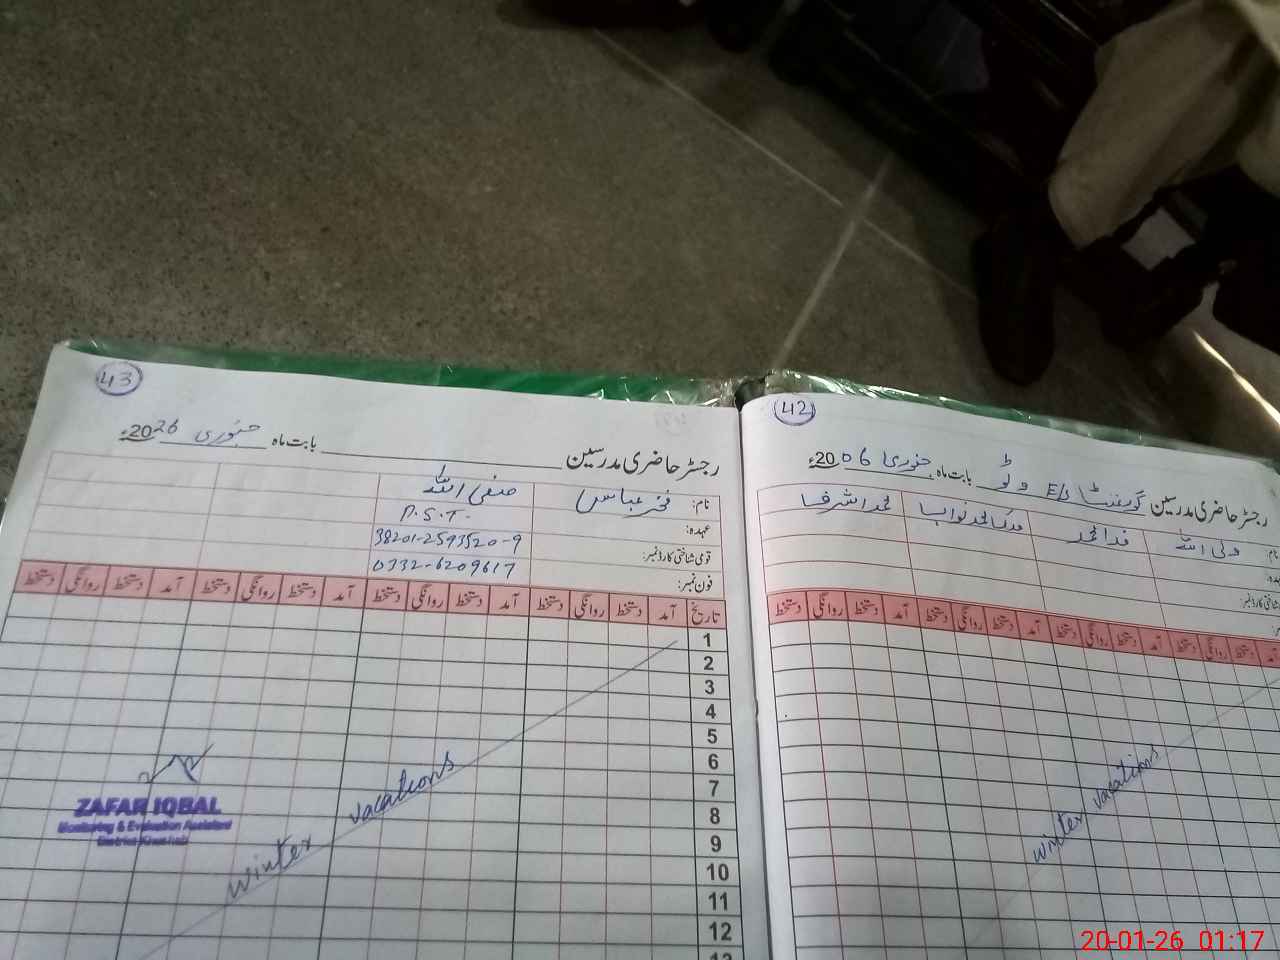 42
رجسٹر حاضری مدرسین گورنمنٹ E/S وٹو بابت ماہ جنوری 2006ء
نام ولی اللہ فدا محمد ملک محمد نواب محمد اشرف
شناختی کارڈ نمبر:
آمد دستخط روانگی دستخط آمد دستخط روانگی دستخط آمد دستخط روانگی دستخط آمد دستخط روانگی دستخط
winter vacations
43
رجسٹر حاضری مدرسین بابت ماہ جنوری 2026ء
نام: فخر عباس صفی اللہ
عہدہ: P.S.T.
قومی شناختی کارڈ نمبر: 38201-2593520-9
فون نمبر: 0332-6209617
تاریخ آمد دستخط روانگی دستخط آمد دستخط روانگی دستخط آمد دستخط روانگی دستخط آمد دستخط روانگی دستخط
1
2
3
4
5
6
7
8
9
10
11
12
13
winter vacations
ZAFAR IQBAL
Monitoring & Evaluation Assistant
District Khushab
20-01-26 01:17